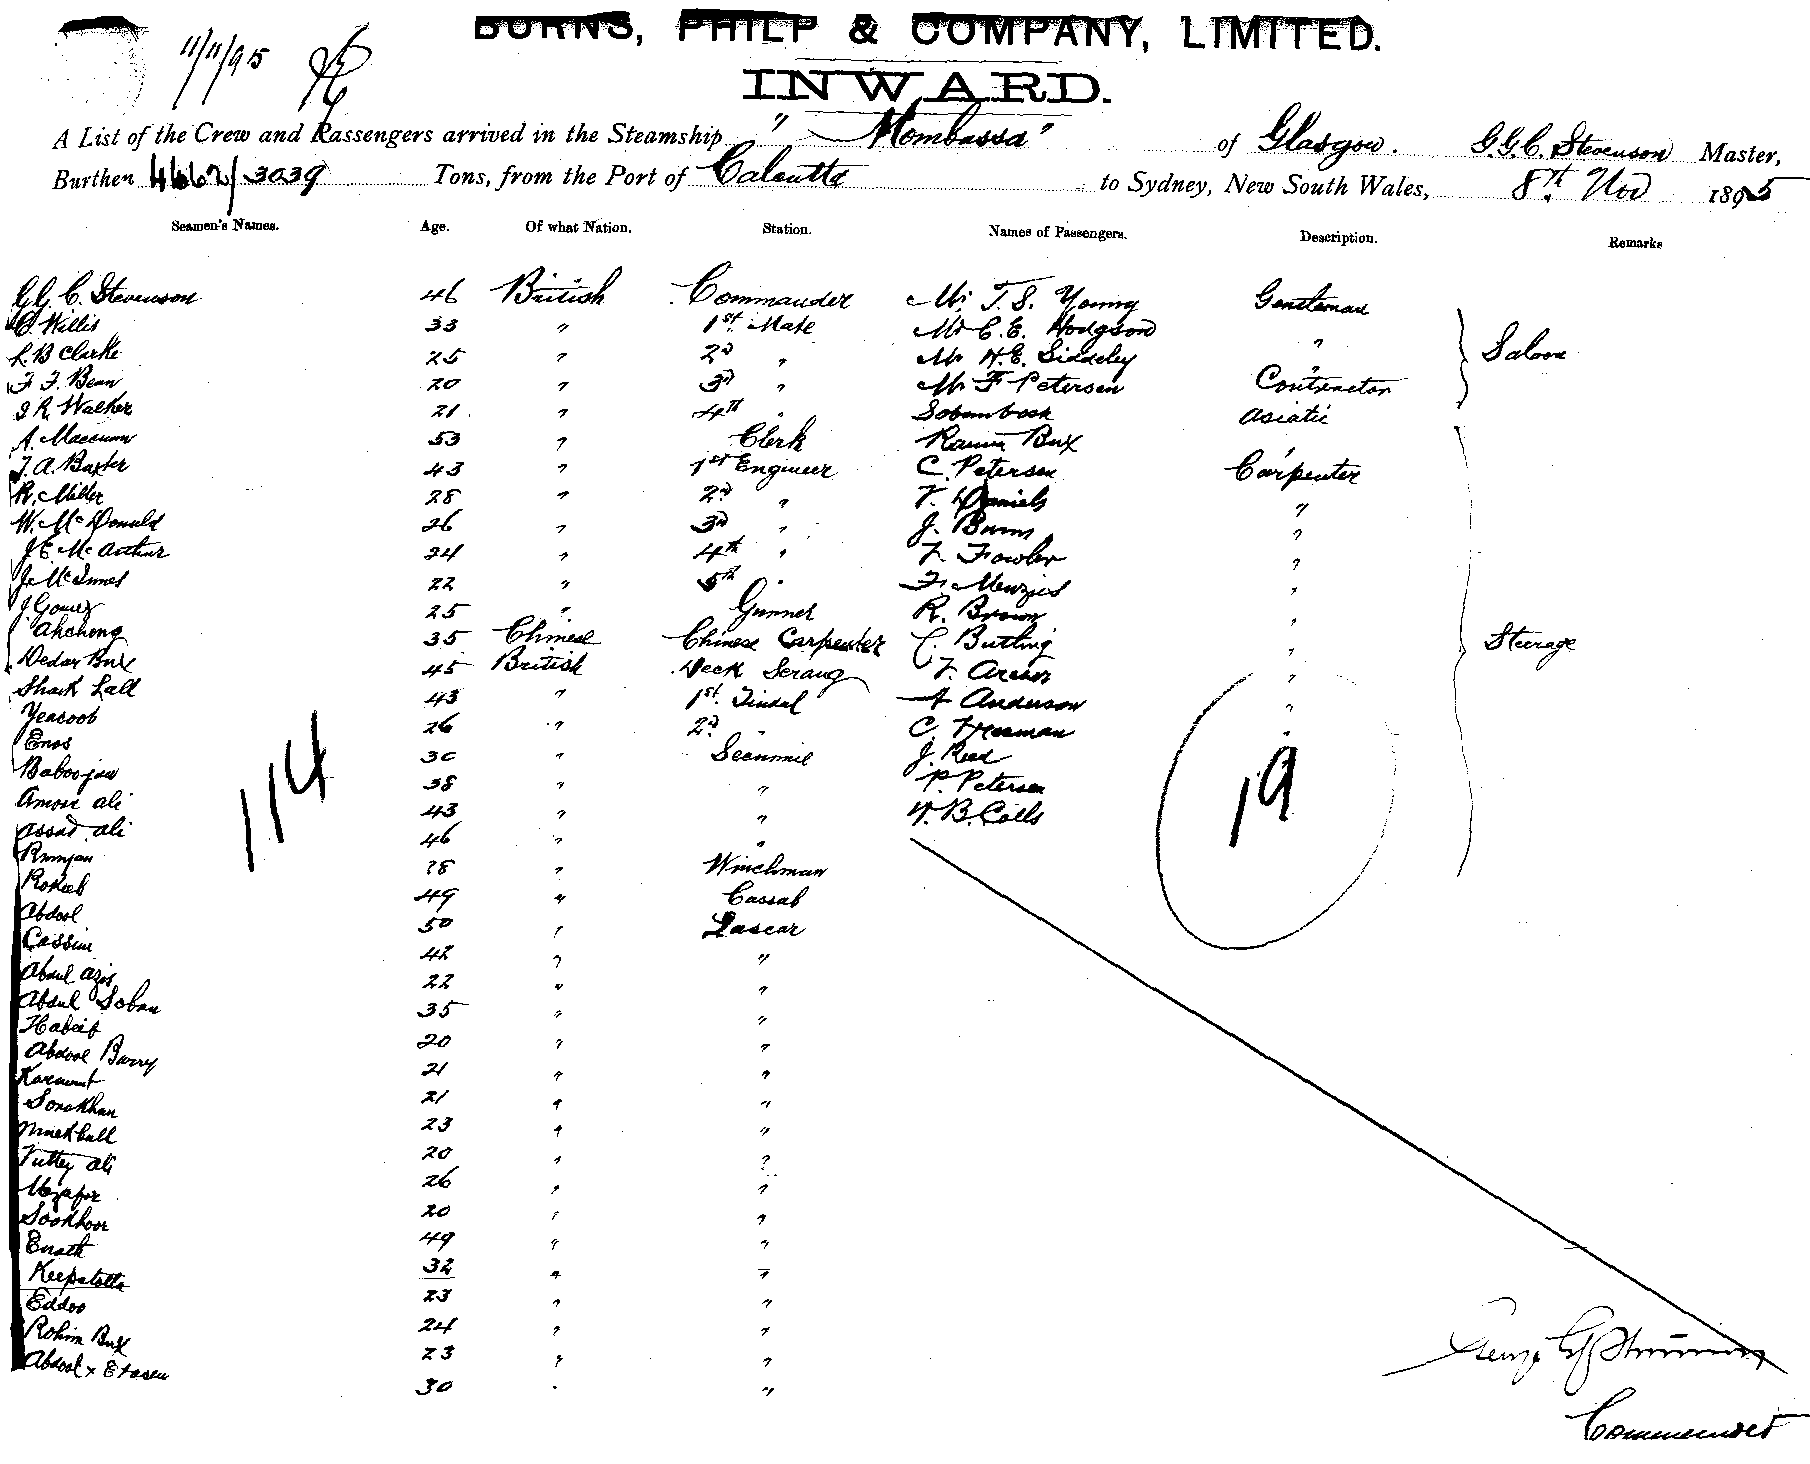 BURNS, PHILP & COMPANY, LIMITED.
11/11/95
INWARD.
A List of the Crew and Passengers arrived in the Steamship "Mombassa" of Glasgow. G.G.C. Stevenson Master,
Burthen 4662/3039 Tons, from the Port of Calcutta to Sydney, New South Wales, 8th Nov 1895
Seamen's Names. Age. Of what Nation. Station. Names of Passengers. Description. Remarks
G.G.C. Stevenson 46 British Commander Mr. T. S. Young Gentleman
C Willis 33 " 1st Mate Mr C. E. Hodgson "
L B Clarke 25 " 2d " Mr H. E. Siddeley " Saloon
F. F. Bean 20 " 3d " Mr F Petersen Contractor
R. Walker 21 " 4th " Asiatic
A. 53 " Clerk Bux
J. A. Baxter 43 " 1st Engineer C. Petersen Carpenter
R. Miller 28 " 2d " Daniels "
W. McDonald 26 " 3d " J. Burns "
J. E. McArthur 24 " 4th " Fowler "
J. McInnes 22 " 5th " F. Menzies "
J Gomez 25 " Gunner R. Brown "
Ahchong 35 Chinese Chinese Carpenter C. Butling " Steerage
Dedar Bux 45 British Deck Serang "
Shaik Lall 43 " 1st Tindal A Anderson "
Yeacoob 26 " 2d " C. "
Enos 30 " Seccunnie J. Reed
Baboojan 38 " " P. Petersen
Amour ali 43 " " B. Colls
Assad ali 46 " "
114
19
Rumjan 28 " Winchman
Rokeeb 49 " Cassab
Abdool 50 " Lascar
Cassim 42 " "
Abdul Azis 22 " "
Abdul Soban 35 " "
Habeeb 20 " "
Abdool Barry 21 " "
Karamut 21 " "
Sonakhan 23 " "
20 " "
Futtey Ali 26 " "
Mozafor 20 " "
Sookhoor 49 " "
Enath 32 " "
23 " "
Eddoo 24 " "
Rohim Bux 23 " "
Abdool 30 " "
Commander